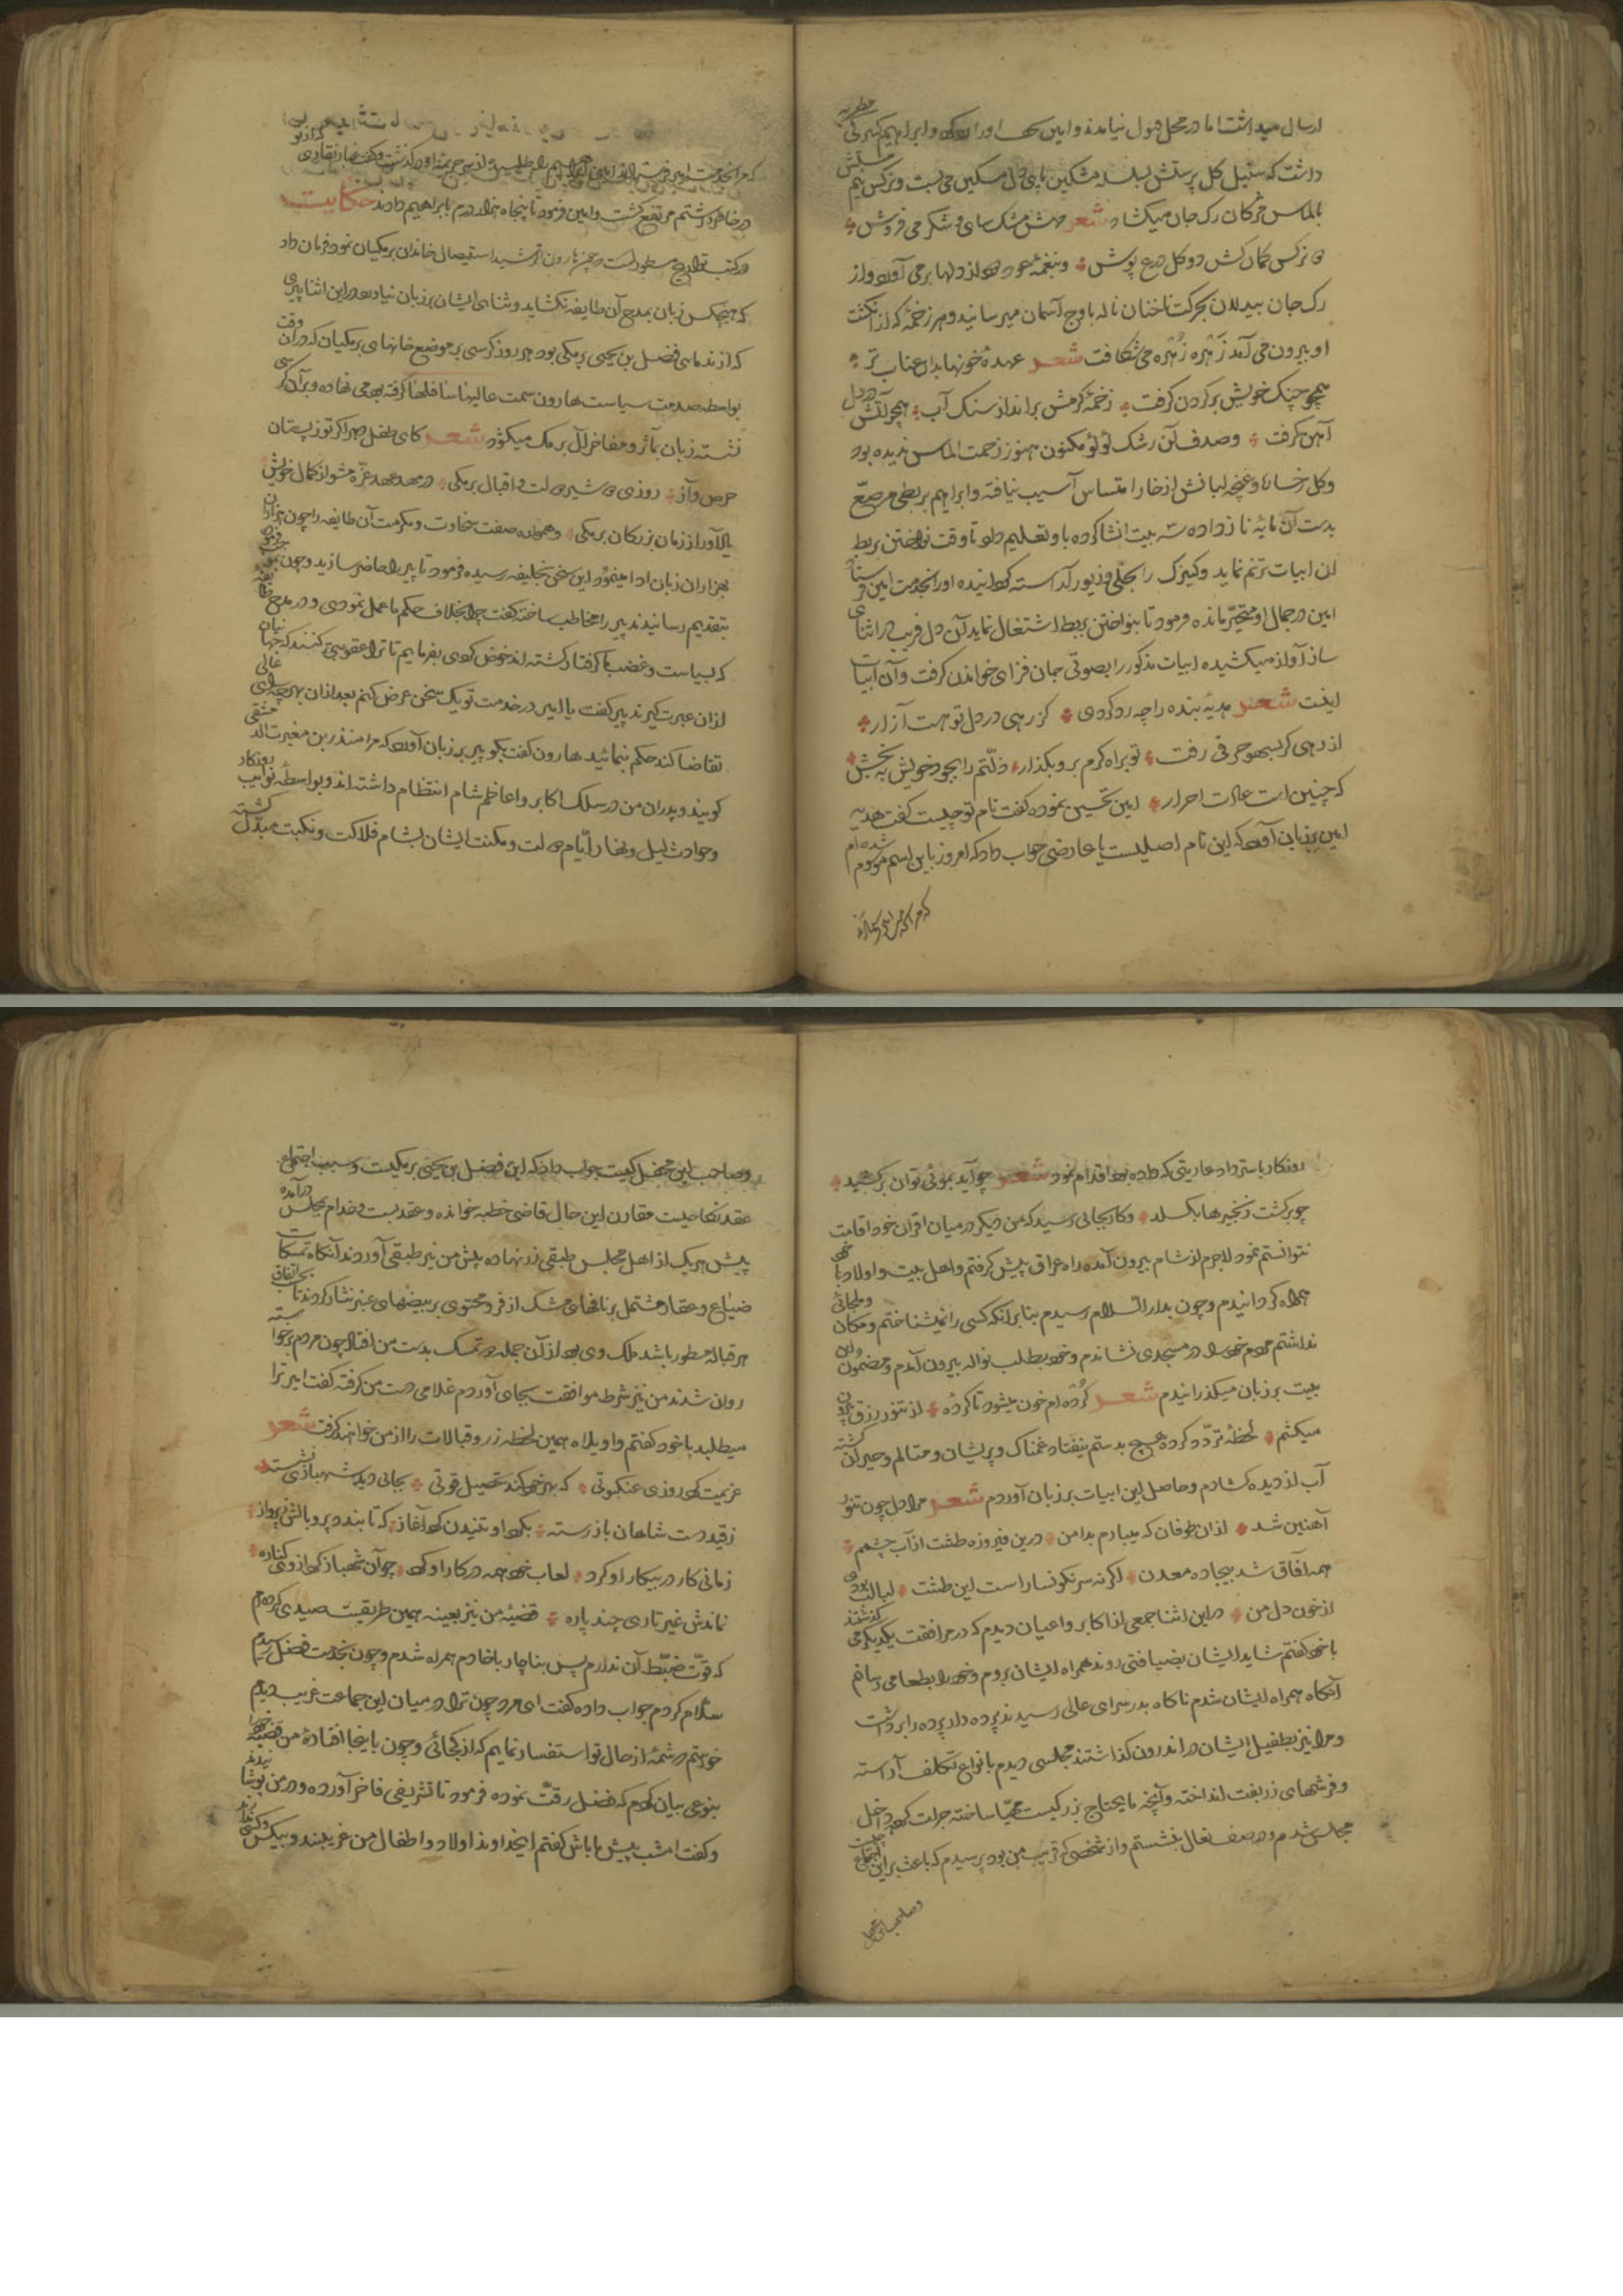 ارسال میداشت اما در محل قبول نیامدند و امین
داشت که سنبل کل پرستش سلسله مشکین بپای دل مسکین می بست و نرکس نیم مستش
بالماس مژکان رک جان میکشاد شعر مشک سای و شکر می فروش
دو نرکس کمان کش دو کل درع پوش و بنغمهٔ عود دود از دلها برمی آورد و از
رک جان بیدلان بحرکت ناخنان ناله باوج آسمان میرسانید و هر زخمهٔ که از انکشت
او بیرون می آمد زَهرهٔ زُهره می شکافت شعر عهدهٔ خونها بدان عناب تر
همچو چنک خویش بر کردن کرفت زخمهٔ کرمش براند از سنک آب همچو آتش در دل
آهن کرفت و صدف آن رشک لؤلؤ مکنون هنوز زحمت الماس ندیده بود
و کل رخسار و غنچه لبانش از خار امتساس آسیب نیافته و ابراهیم بربطی مرصّع
بدست آن مایهٔ ناز داده سه بیت انشا کرده باو تعلیم داد تا وقت نواختن بربط
آن ابیات ترنم نماید و کنیزک را بحلّی و زیور آراسته کردانیده اورا بخدمت امین فرستاد
امین در جمال او متحیّر مانده فرمود تا بنواختن بربط اشتغال نماید آن دل فریب در اثنای
ساز آواز میکشیده ابیات مذکور را بصوتی جان فزای خواندن کرفت و آن ابیات
اینست شعر هدیهٔ بنده را چه رد کردی کز رهی در دل تو هست آزار
از رهی کر بسهو حرفی رفت تو براه کرم برو بکذار ذلّتم را بجود خویش به بخش
که چنین است عادت احرار امین تحسین نموده کفت نام تو چیست کفت هدیه
امین بر زبان آورد که این نام اصلیست یا عارضی جواب داد که امروز باین اسم موسوم شده ام
در خاطر داشتم مرتفع کشت و امین فرمود تا پنجاه هزار درم بابراهیم دادند حکایت
در کتب تواریخ مسطور است که چون هارون الرشید استیصال خاندان برمکیان نمود فرمان داد
که هیچکس زبان بمدح آن طایفه نکشاید و ثنای ایشان بر زبان نیاورد در این اثنا پیری
که از ندمای فضل بن یحیی برمکی بود هر روز کرسی بر موضع خانهای برمکیان که در آن وقت
بواسطه صدمت سیاست هارون سمت عالیها سافلها کرفته بود می نهاده و بر آن کرسی
نشسته زبان بمآثر و مفاخر آل برمک میکشود شعر کای طفل دهر اکر تو ز پستان
حرص و آز روزی دو شیر دولت و اقبال برمکی در مهد عهد غرّه مشو از کمال خویش
یاد آور از زمان بزرکان برمکی و همواره صفت سخاوت و مکرمت آن طایفه را چون هزاران
بهزاران زبان ادا مینمود این سخن بخلیفه رسیده فرمود تا پیر را حاضر سازید و چون
بتقدیم رسانیدند پیر را مخاطب ساخته کفت چرا بخلاف حکم ما عمل نمودی و در مدح طایفهٔ
که بسیاست و غضب ما کرفتار کشته اند خوض کردی بفرمایم تا ترا عقوبتی کنند که جهانیان
از آن عبرت کیرند پیر کفت یا امیر در خدمت تو یک سخن عرض کنم بعد از آن بهرچه رای عالی
تقاضا کند حکم نمائید هارون کفت بکو پیر بر زبان آورد که مرا منذر بن مغیرت الدمشقی
کویند و پدران من در سلک اکابر و اعاظم شام انتظام داشته اند و بواسطهٔ نوایب روزکار
و حوادث لیل و نهار ایّام دولت و مکنت ایشان بشام فلاکت و نکبت مبدّل کشته
روزکار باسترداد عاریتی که داده بود اقدام نمود شعر چو آید بموئی توان برکشید
چو برکشت زنجیرها بکسلد و کار بجائی رسید که من دیکر در میان اقران خود اقامت
نتوانستم نمود لاجرم از شام بیرون آمده راه عراق پیش کرفتم و اهل بیت و اولاد با خود
همراه کردانیدم و چون بدار السلام رسیدم بنابرآنکه کسی را نمیشناختم و مکان و ملجائی
نداشتم مردم خود را در مسجدی نشاندم و خود بطلب نواله بیرون آمدم و مضمون این
بیت بر زبان میکذرانیدم شعر کُرده ام خون میشود تا کردهٔ از تنور رزق بیرون
میکشم لحظهٔ تردّد کرده هیچ بدستم نیفتاد غمناک و پریشان و متالم و حیران کشته
آب از دیده کشادم و حاصل این ابیات بر زبان آوردم شعر مرا دل چون تنور
آهنین شد از آن طوفان که میبارم بدامن درین فیروزه طشت از آب چشمم
همه آفاق شد بیجاده معدن اکر نه سرنکونسار است این طشت لبالب بودی
از خون دل من در این اثنا جمعی از اکابر و اعیان دیدم که در مرافقت یکدیکر می کذشتند
با خود کفتم شاید ایشان بضیافتی روند همراه ایشان بروم و خود را بطعامی رسانم
آنکاه همراه ایشان شدم ناکاه بدر سرای عالی رسیدند پرده دار پرده را برداشت
و مرا نیز بطفیل ایشان در اندرون کذاشتند مجلسی دیدم بانواع تکلف آراسته
و فرشهای زربفت انداخته و آنچه مایحتاج بزرکیست مهیّا ساخته جرات کرده داخل
مجلس شدم و در صف نعال بنشستم و از شخصی که قریب من بود پرسیدم که باعث بر این اجتماع چیست
و صاحب این محفل کیست جواب داد که این فضل بن یحیی برمکیست و سبب اجتماع
عقد نکاحیست مقارن این حال قاضی خطبه خوانده و عقد بست و خدام بمجلس درآمده
پیش هر یک از اهل مجلس طبقی زر نهاده پیش من نیز طبقی آوردند آنکاه تمسکات
ضیاع و عقار مشتمل بر نافهای مشک ازفر و محتوی بر بیضهای عنبر نثار کردند تا
هر قباله مسطور باشد ملک وی بود از آن جمله دو تمسک بدست من افتاد چون مردم برخواسته
روان شدند من نیز شرط موافقت بجای آوردم غلامی دست من کرفته کفت امیر ترا
میطلبد با خود کفتم واویلاه همین لحظه زر و قبالات را از من خواهند کرفت شعر
عزیمت کرد روزی عنکبوتی که بهر خود کند تحصیل قوتی بجائی دید شهبازی نشسته
ز قید دست شاهان باز رسته بکرد او تنیدن کرد آغاز که تا بندد پر و بالش ز پرواز
زمانی کار در پیکار او کرد لعاب خود همه در کار او کرد چو آن شهباز کرد از وی کناره
نماندش غیر تاری چند پاره قضیهٔ من نیز بعینه همین طریقیست صیدی کرده ام
که قوّت ضبّط آن ندارم پس بناچار با خادم همراه شدم و چون بخدمت فضل رسیدم
سلام کردم جواب داده کفت ای مرد چون ترا در میان این جماعت غریب دیدم
خواستم که شمهٔ از حال تو استفسار نمایم که از کجائی و چون باینجا افتادهٔ من قصهٔ خود را
بنوعی بیان کردم که فضل رقّت نموده فرمود تا تشریفی فاخر آورده و در من پوشانیدند
و کفت امشب پیش ما باش کفتم ایخداوند اولاد و اطفال من غریبند و بیکس